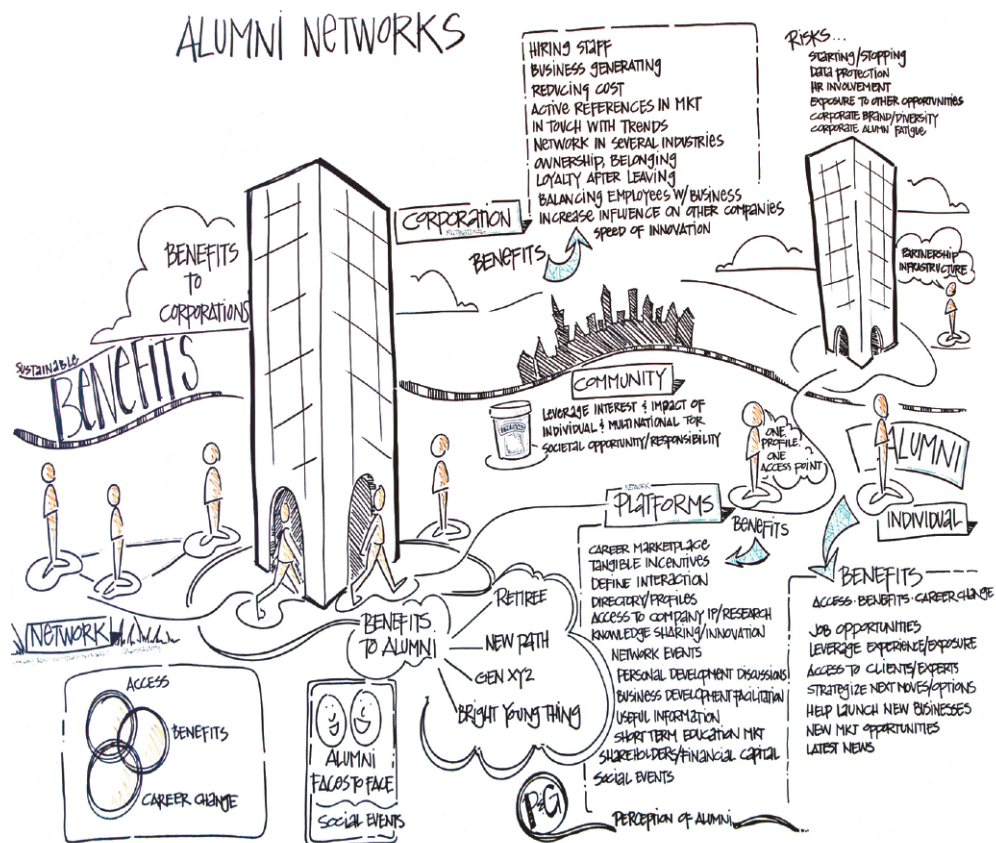 ALUMNI NETWORKS
HIRING STAFF
BUSINESS GENERATING
REDUCING COST
ACTIVE REFERENCES IN MKT
IN TOUCH WITH TRENDS
NETWORK IN SEVERAL INDUSTRIES
OWNERSHIP, BELONGING
LOYALTY AFTER LEAVING
BALANCING EMPLOYEES W/BUSINESS
INCREASE INFLUENCE ON OTHER COMPANIES
SPEED OF INNOVATION
RISKS...
STARTING/STOPPING
DATA PROTECTION
HR INVOLVEMENT
EXPOSURE TO OTHER OPPORTUNITIES
CORPORATE BRAND/DIVERSITY
CORPORATE ALUMNI FATIGUE
CORPORATION
BENEFITS
BENEFITS
TO
CORPORATIONS
SUSTAINABLE
BENEFITS
PARTNERSHIP
INFRASTRUCTURE
COMMUNITY
LEVERAGE INTEREST & IMPACT OF
INDIVIDUAL & MULTINATIONAL FOR
SOCIETAL OPPORTUNITY/RESPONSIBILITY
ONE
PROFILE,
ONE
ACCESS POINT
ALUMNI
INDIVIDUAL
NETWORK
PLATFORMS
BENEFITS
CAREER MARKETPLACE
TANGIBLE INCENTIVES
DEFINE INTERACTION
DIRECTORY/PROFILES
ACCESS TO COMPANY IP/RESEARCH
KNOWLEDGE SHARING/INNOVATION
NETWORK EVENTS
PERSONAL DEVELOPMENT DISCUSSIONS
BUSINESS DEVELOPMENT FACILITATION
USEFUL INFORMATION
SHORT TERM EDUCATION MKT
SHAREHOLDERS/FINANCIAL CAPITAL
SOCIAL EVENTS
PERCEPTION OF ALUMNI
BENEFITS
ACCESS · BENEFITS · CAREER CHANGE
JOB OPPORTUNITIES
LEVERAGE EXPERIENCE/EXPOSURE
ACCESS TO CLIENTS/EXPERTS
STRATEGIZE NEXT MOVES/OPTIONS
HELP LAUNCH NEW BUSINESSES
NEW MKT OPPORTUNITIES
LATEST NEWS
NETWORK
BENEFITS
TO ALUMNI
RETIREE
NEW PATH
GEN XYZ
BRIGHT YOUNG THING
ACCESS
BENEFITS
CAREER CHANGE
ALUMNI
FACES TO FACE
SOCIAL EVENTS
P&G